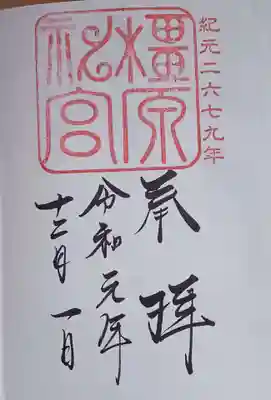 紀元二六七九年
橿原
神宮
奉拝
令和元年
十二月一日